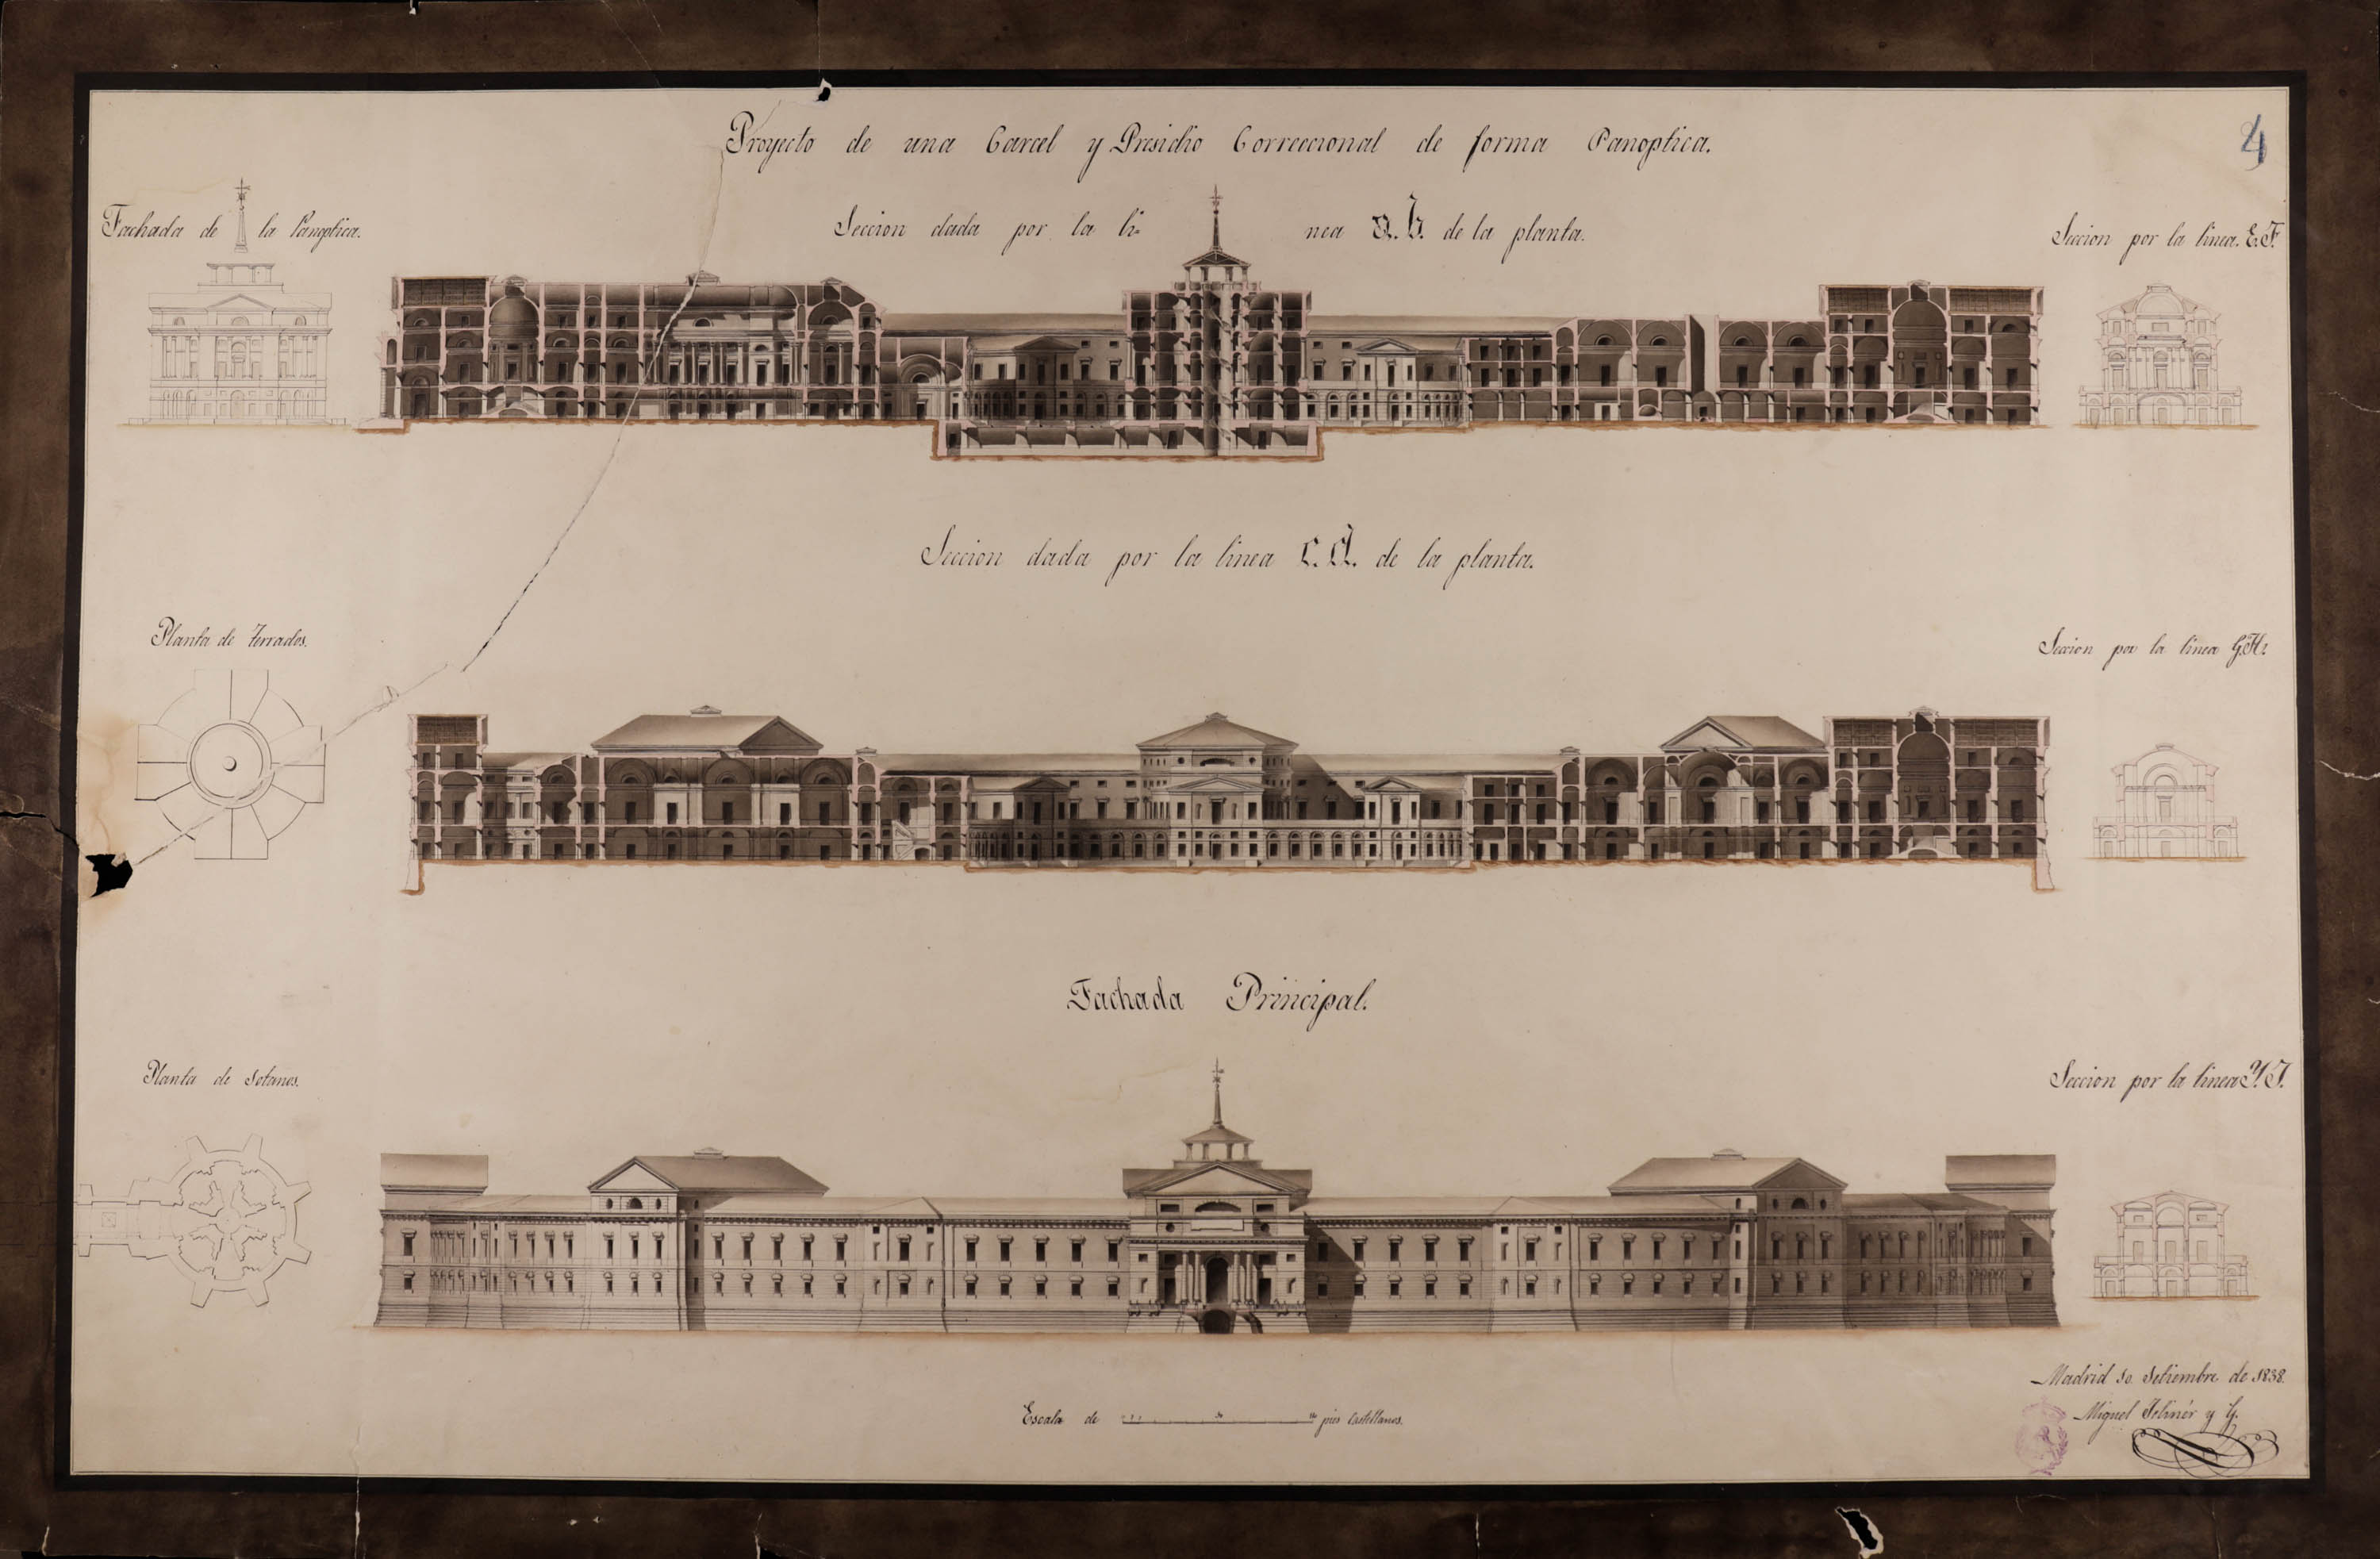 Proyecto de una Carcel y Presidio Correccional de forma Panoptica.
4
Fachada de la Panoptica.
Seccion dada por la li- nea a. b. de la planta.
Seccion por la linea. E.F.
Seccion dada por la linea c. d. de la planta.
Planta de Terrados.
Seccion por la linea G.H.
Fachada Principal.
Planta de Sotanos.
Seccion por la linea Y.J.
Madrid 10 Setiembre de 1838.
Escala de pies Castellanos.
Miguel y G.